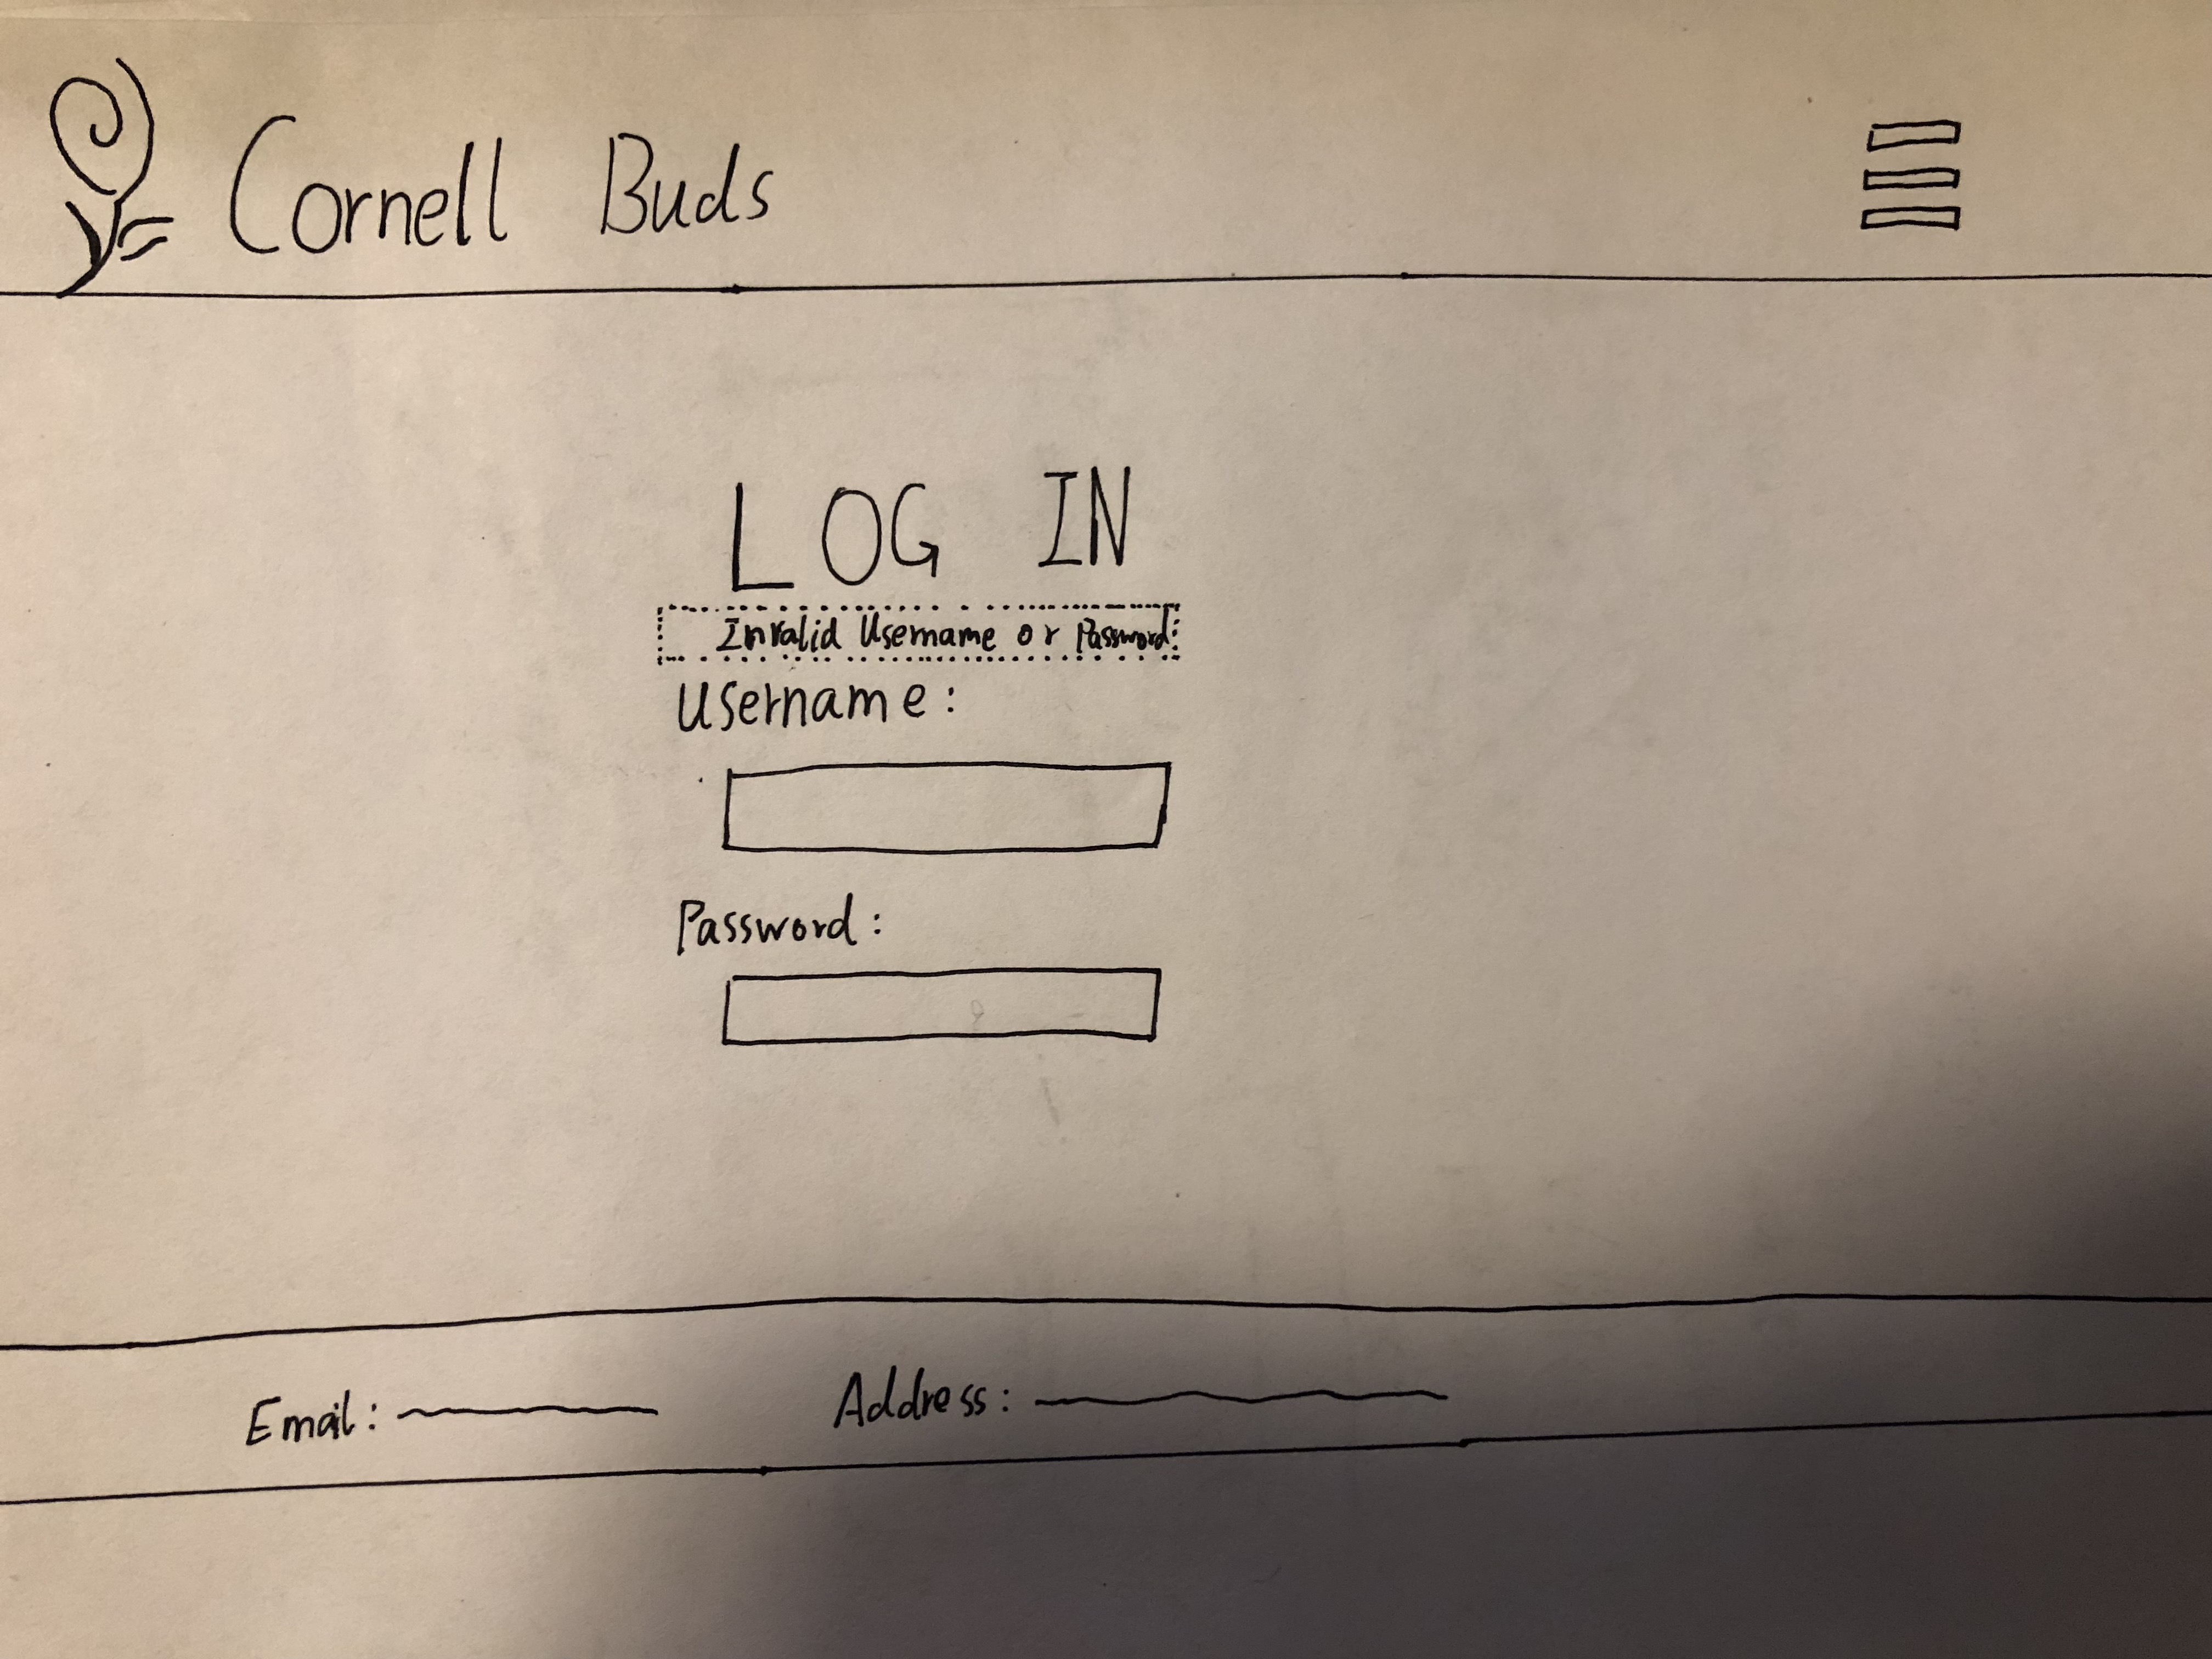 Cornell Buds
LOG IN
Invalid Username or Password
Username:
Password:
Email:
Address: